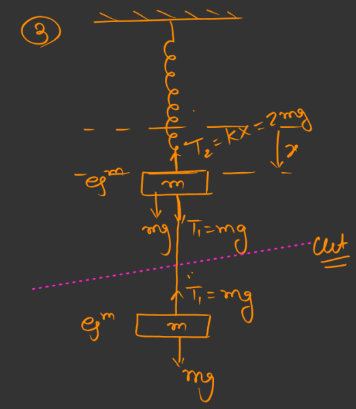 3
T₂ = kx = 2mg
x
eqᵐ
m
mg
T₁ = mg
cut
T₁ = mg
eqᵐ
m
mg